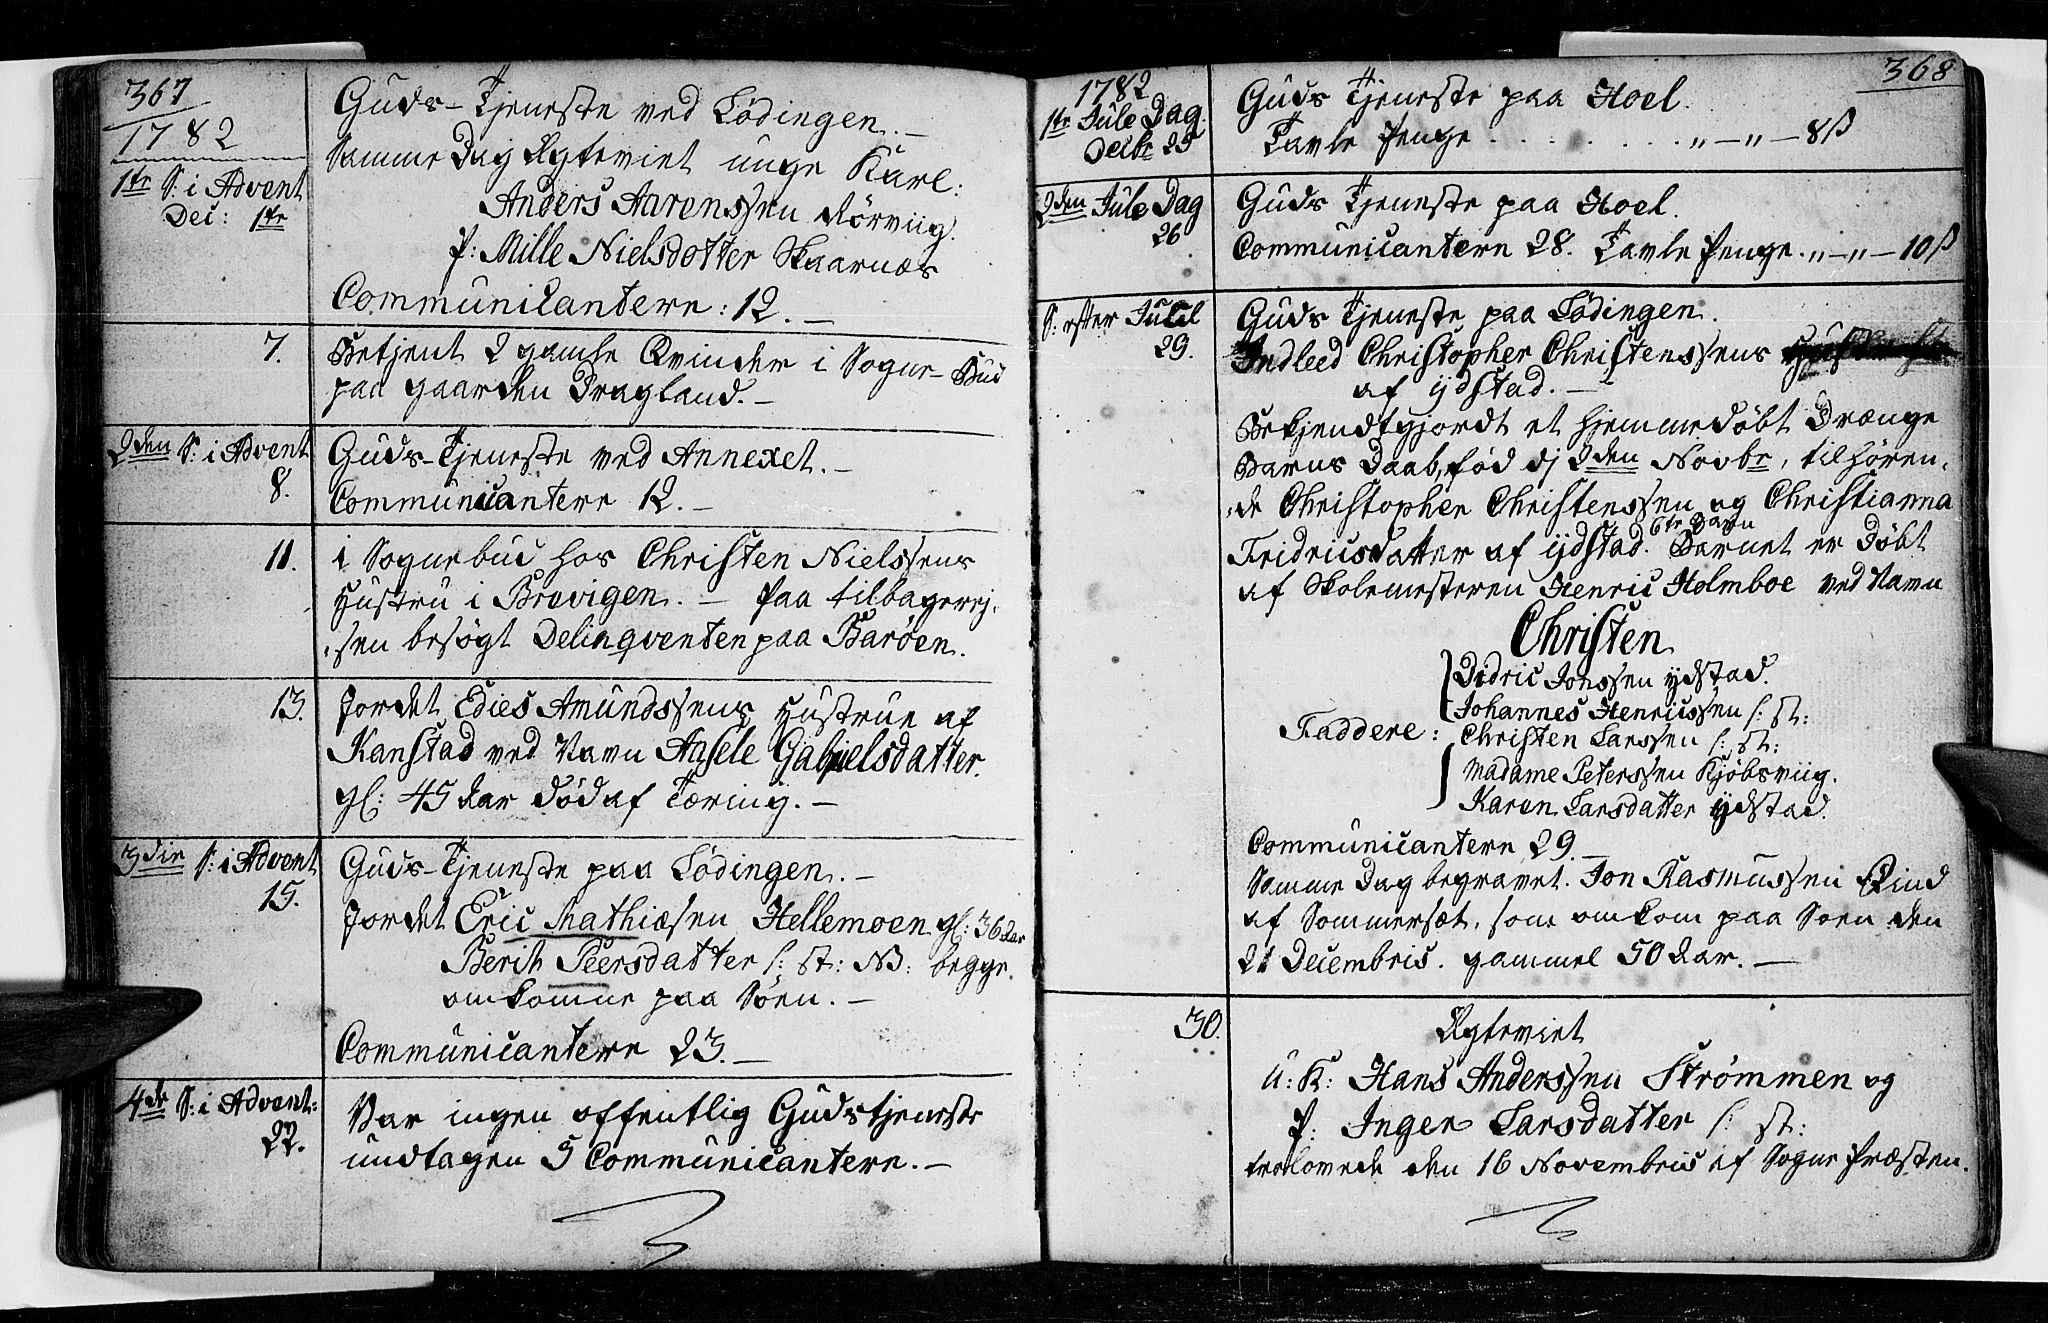 367
1782
1te S: i Advent
Dec: 1te
Guds-Tjeneste ved Lödingen.-
Samme Dag Ægteviet unge Karl:
Anders Aarenssen Rörviig.
P: Mille Nielsdotter Skaarnæs
Communicantere: 12.-
7.
Betjent 2 gamle Qvinder i Sogne-Bud
paa gaarden Dragland.-
2den S: i Advent
8.
Guds-Tjeneste ved Annexet.-
Communicantere 12.-
11.
i Sognebud hos Christen Nielssens
Hustru i Brevigen.- Paa tilbagerej,
,sen besøgt Delinqventen paa Barøen.
13.
Jordet Edies Amundssens Hustrue af
Kanstad ved Navn Ansele Gabrielsdatter.
gl: 45 Aar død af Tæring.-
3die S: i Advent
15.
Guds-Tjeneste paa Lödingen.-
Jordet Eric Mathiæsen Hellemoen gl: 36 Aar
Berith Peersdatter s: st: NB: begge
omkomne paa Søen.-
Communicantere 23.-
4de S: i Advent:
22.
Var ingen offentlig Gudstjeneste
undtagen 5 Communicantere.-
368
1782
1te Jule Dag.
Decbr 25
Guds Tjeneste paa Hoel.
Tavle Penge . . . . . . . „-„-8ß
2den Jule Dag
26
Guds Tjeneste paa Hoel.
Communicantere 28. Tavle Penge. „-„-10ß
S: efter Juul
29.
Guds Tjeneste paa Lödingen.
Indleed Christopher Christenssens
af ydstad.-
Bekjendtgjordt et hjemmedøbt Drænge
Barns Daab, fød dj 2den Novbr, tilhören,
,de Christopher Christenssen og Christianna
Fridricsdatter af ydstad. 6te Barn Barnet er Døbt
af Skolemesteren Henric Holmboe ved Navn
Christen
Didric Jonssen ydstad.
Johannes Henricssen s: st:
Faddere: Christen Larssen s: st:
Madame Peterssen Kjöbsviig.
Karen Larsdatter ydstad.
Communicantere 29.-
Samme Dag begravet. Jon Rasmussen Qvind
af Sommersæt, som omkom paa Søen den
21 Decembris. gammel 50 Aar.-
30.
Ægteviet
U: K: Hans Anderssen Strømmen og
P: Inger Larsdatter s: st:
trolovede den 16 Novembris af Sogne Præsten.